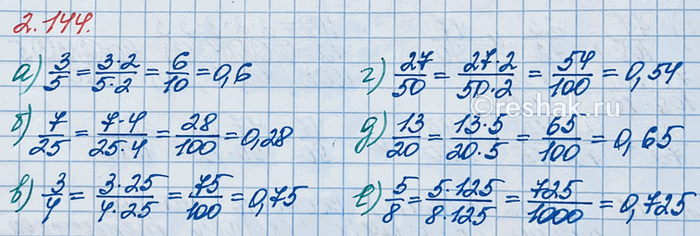 2.144.
а) 3/5 = 3·2/5·2 = 6/10 = 0,6
б) 7/25 = 7·4/25·4 = 28/100 = 0,28
в) 3/4 = 3·25/4·25 = 75/100 = 0,75
г) 27/50 = 27·2/50·2 = 54/100 = 0,54
©reshak.ru
д) 13/20 = 13·5/20·5 = 65/100 = 0,65
е) 5/8 = 5·125/8·125 = 725/1000 = 0,725